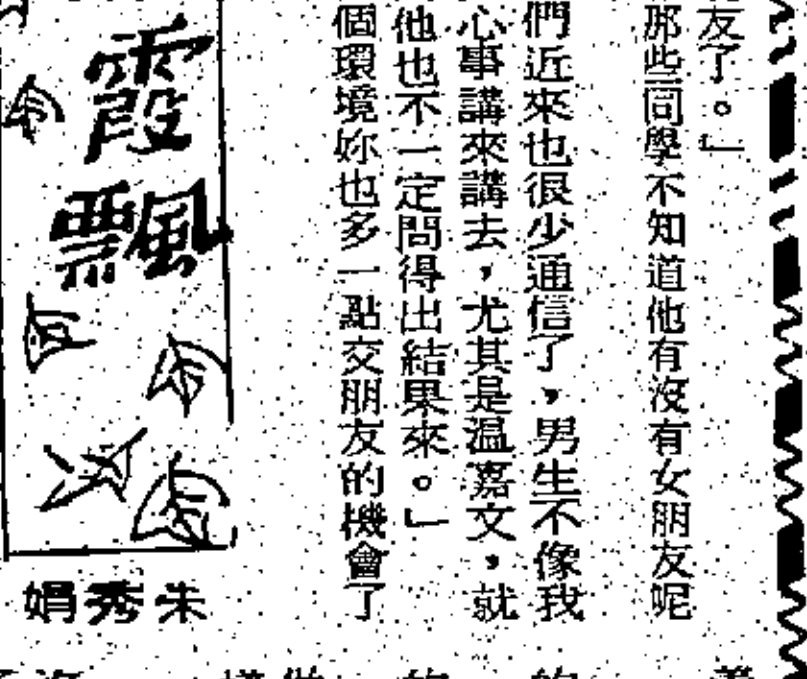 友了。」
那些同學不知道他有沒有女朋友呢
們近來也很少通信了,男生不像我
心事講來講去,尤其是溫嘉文,就
他也不一定問得出結果來。」
個環境妳也多一點交朋友的機會了
霞飄
朱秀娟